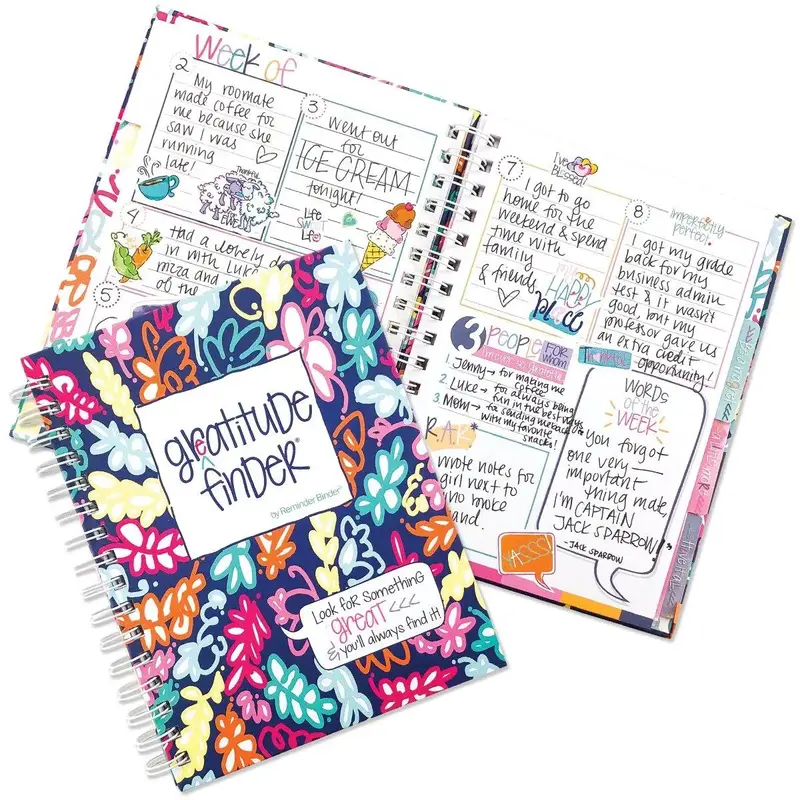 Week of
2
My roomate
made coffee for
me because she
saw I was
running
late!
3
Went out
for
ICE CREAM
tonight!
Thankful
Life
Sweet
Life
4
Had a lovely d
in with Luke
pizza and
5
7
I've
BLESSED!
I got to go
home for the
weekend & spend
time with
family
& friends.
my
HAPPY
place
8
imperfectly
perfect
I got my grade
back for my
business admin
test & it wasn't
good, but my
professor gave us
an extra credit
opportunity!
3 PEOPLE FOR
whom
Thankful
1. Jenny → for making me
coffee
2. Luke → for always being
fun in the best ways
3. Mom → for sending me
with my favorite
snacks!
R.A.K
wrote notes for
girl next to
who broke
hand.
YASSS!
WORDS
of the
WEEK
You forgot
one very
important
thing mate,
I'M CAPTAIN
JACK SPARROW!
-JACK SPARROW
greatitude
finder
by Reminder Binder®
Look for something
great <<<
& you'll always find it!